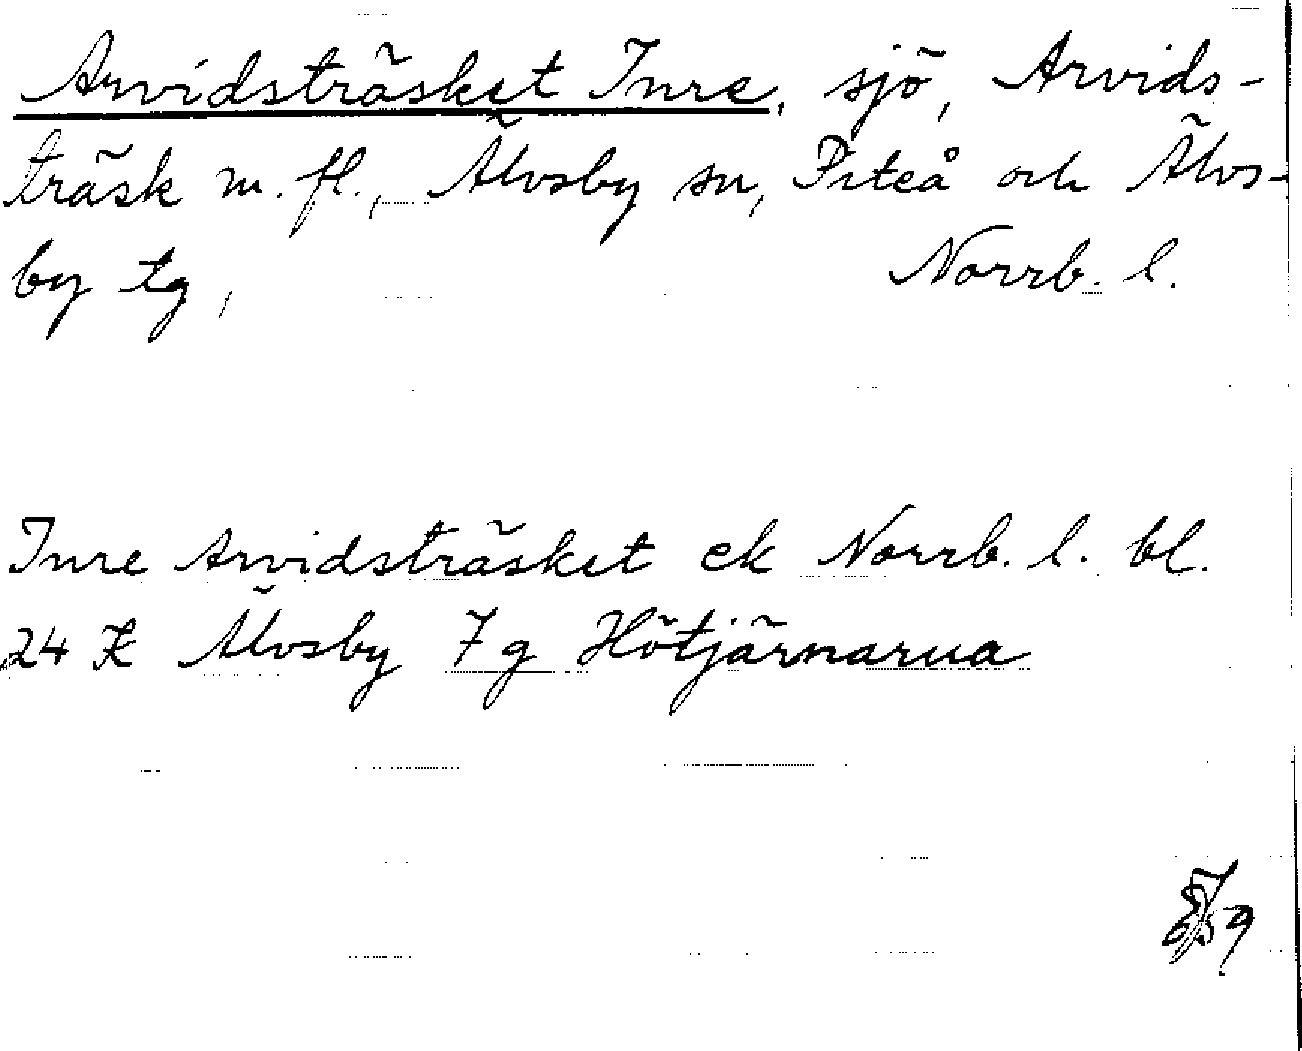 Arvidsträsket Inre, sjö, Arvids-
träsk m. fl., Älvsby sn, Piteå och Älvs-
by tg, Norrb. l.
Inre Arvidsträsket ek Norrb. l. bl.
24 K Älvsby 7 g Hötjärnarna